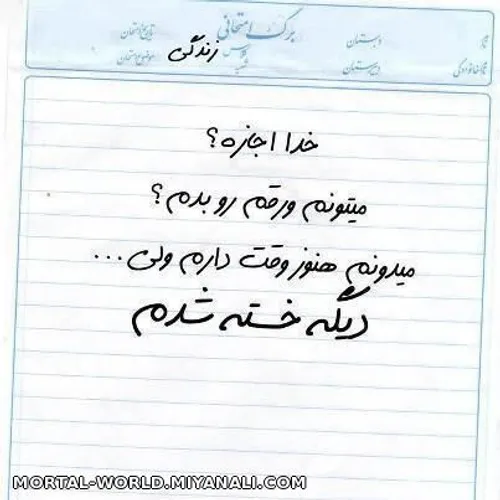 برگ امتحانی
نام
دبستان
تاریخ امتحان
نام خانوادگی
دبیرستان
درس زندگی
موضوع امتحان
خدا اجازه؟
میتونم ورقم رو بدم؟
میدونم هنوز وقت دارم ولی...
دیگه خسته شدم
MORTAL-WORLD.MIYANALI.COM